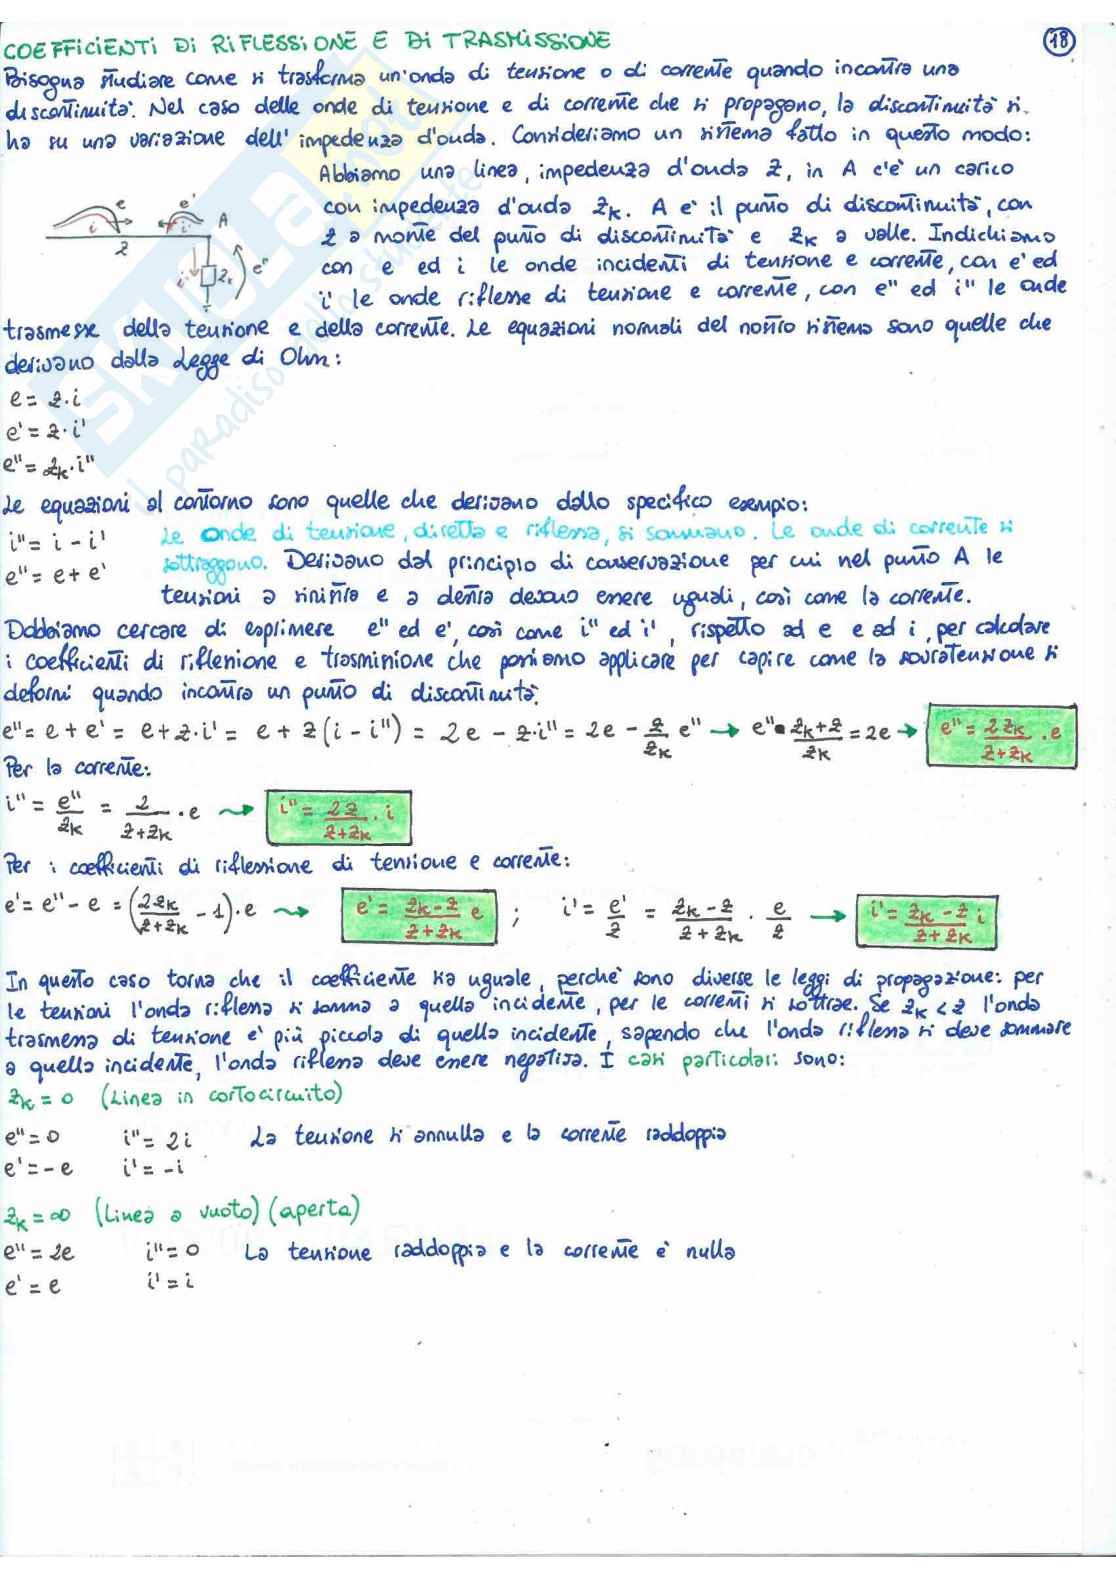 COEFFICIENTI DI RIFLESSIONE E DI TRASMISSIONE
18
Bisogna studiare come si trasforma un'onda di tensione o di corrente quando incontra una
discontinuità. Nel caso delle onde di tensione e di corrente che si propagano, la discontinuità si
ha su una variazione dell'impedenza d'onda. Consideriamo un sistema fatto in questo modo:
Abbiamo una linea, impedenza d'onda Z, in A c'è un carico
con impedenza d'onda Zk. A è il punto di discontinuità, con
Z a monte del punto di discontinuità e Zk a valle. Indichiamo
con e ed i le onde incidenti di tensione e corrente, con e' ed
i' le onde riflesse di tensione e corrente, con e" ed i" le onde
e e' A
i i'
Z i" Zk e"
trasmesse della tensione e della corrente. Le equazioni normali del nostro sistema sono quelle che
derivano dalla Legge di Ohm:
e = Z·i
e' = Z·i'
e" = Zk·i"
Le equazioni al contorno sono quelle che derivano dallo specifico esempio:
i" = i - i' Le onde di tensione, diretta e riflessa, si sommano. Le onde di corrente si
sottraggono. Derivano dal principio di conservazione per cui nel punto A le
e" = e + e'
tensioni a sinistra e a destra devono essere uguali, così come la corrente.
Dobbiamo cercare di esprimere e" ed e', così come i" ed i', rispetto ad e e ad i, per calcolare
i coefficienti di riflessione e trasmissione che possiamo applicare per capire come la sovratensione si
deformi quando incontra un punto di discontinuità.
e" = e + e' = e + Z·i' = e + Z(i - i") = 2e - Z·i" = 2e - Z/Zk e" → e"·(Zk+Z)/Zk = 2e → e" = 2Zk/(Z+Zk) · e
Per la corrente:
i" = e"/Zk = 2/(Z+Zk) · e → i" = 2Z/(Z+Zk) · i
Per i coefficienti di riflessione di tensione e corrente:
e' = e" - e = (2Zk/(Z+Zk) - 1)·e → e' = (Zk-Z)/(Z+Zk) e ; i' = e'/Z = (Zk-Z)/(Z+Zk) · e/Z → i' = (Zk-Z)/(Z+Zk) i
In questo caso torna che il coefficiente sia uguale, perchè sono diverse le leggi di propagazione: per
le tensioni l'onda riflessa si somma a quella incidente, per le correnti si sottrae. Se Zk < Z l'onda
trasmessa di tensione è più piccola di quella incidente, sapendo che l'onda riflessa si deve sommare
a quella incidente, l'onda riflessa deve essere negativa. I casi particolari sono:
Zk = 0 (Linea in cortocircuito)
e" = 0 i" = 2i La tensione si annulla e la corrente raddoppia
e' = -e i' = -i
Zk = ∞ (Linea a vuoto) (aperta)
e" = 2e i" = 0 La tensione raddoppia e la corrente è nulla
e' = e i' = i
SKUOLA.net
il paradiso dello studente